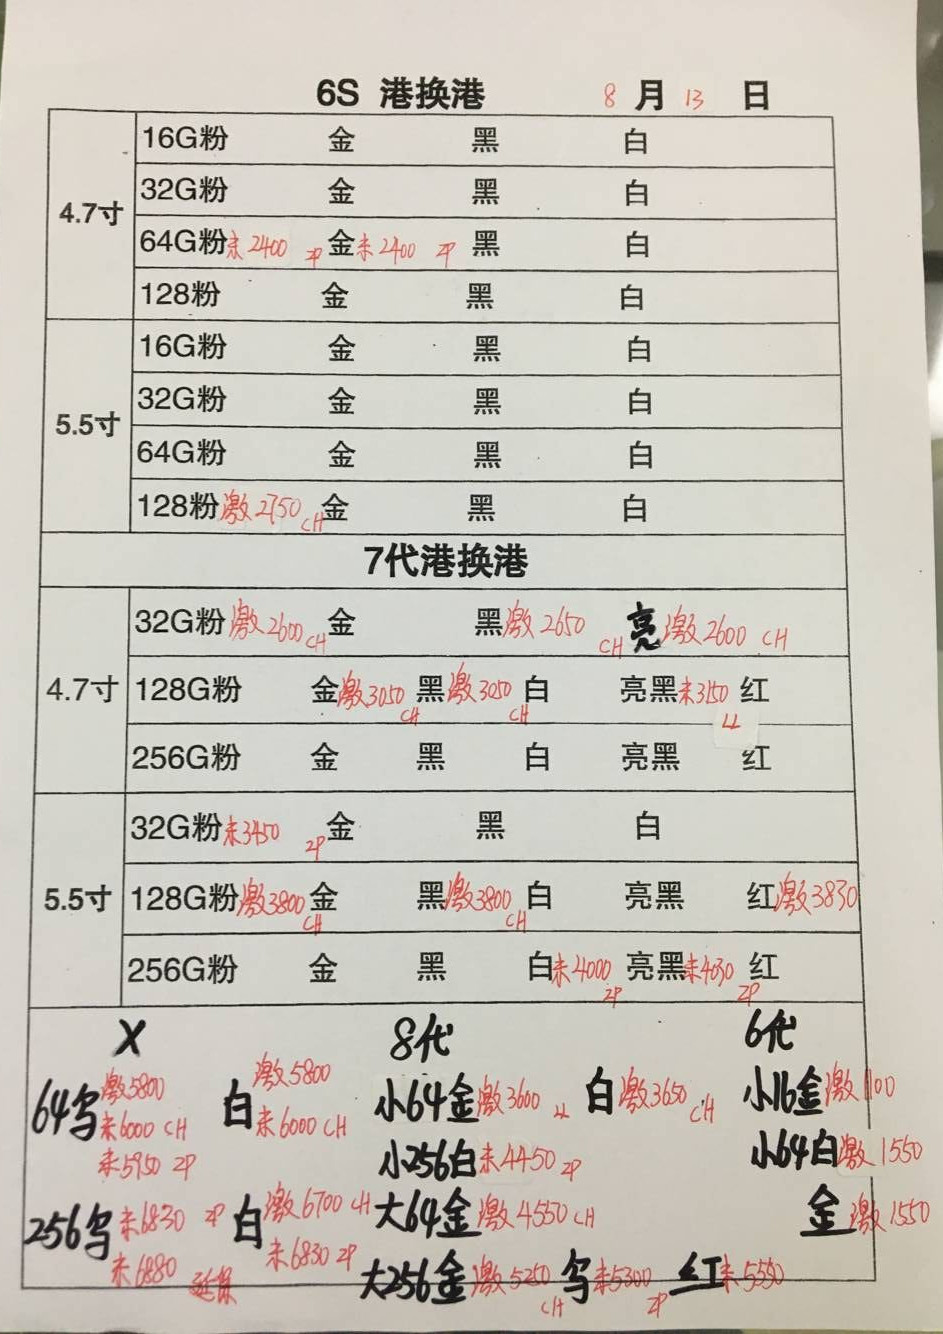 6S 港换港 8 月 13 日
4.7寸
16G粉 金 黑 白
32G粉 金 黑 白
64G粉未2400 ZP 金未2400 ZP 黑 白
128粉 金 黑 白
5.5寸
16G粉 金 黑 白
32G粉 金 黑 白
64G粉 金 黑 白
128粉激2750 CH 金 黑 白
7代港换港
4.7寸
32G粉激2600 CH 金 黑激2650 CH 亮激2600 CH
128G粉 金激3050 CH 黑激3050 CH 白 亮黑未3150 LL 红
256G粉 金 黑 白 亮黑 红
5.5寸
32G粉未3450 ZP 金 黑 白
128G粉激3800 CH 金 黑激3800 CH 白 亮黑 红激3830
256G粉 金 黑 白未4000 ZP 亮黑未4030 ZP 红
X 8代 6代
64乌激5800 白激5800 小64金激3600 LL 白激3650 CH 小16金激1100
未6000 CH 未6000 CH
未5950 ZP 小256白未4450 ZP 小64白激1550
256乌未6830 ZP 白激6700 CH 大64金激4550 CH 金激1550
未6880 延保 未6830 ZP 大256金激5250 CH 乌未5300 ZP 红未5550